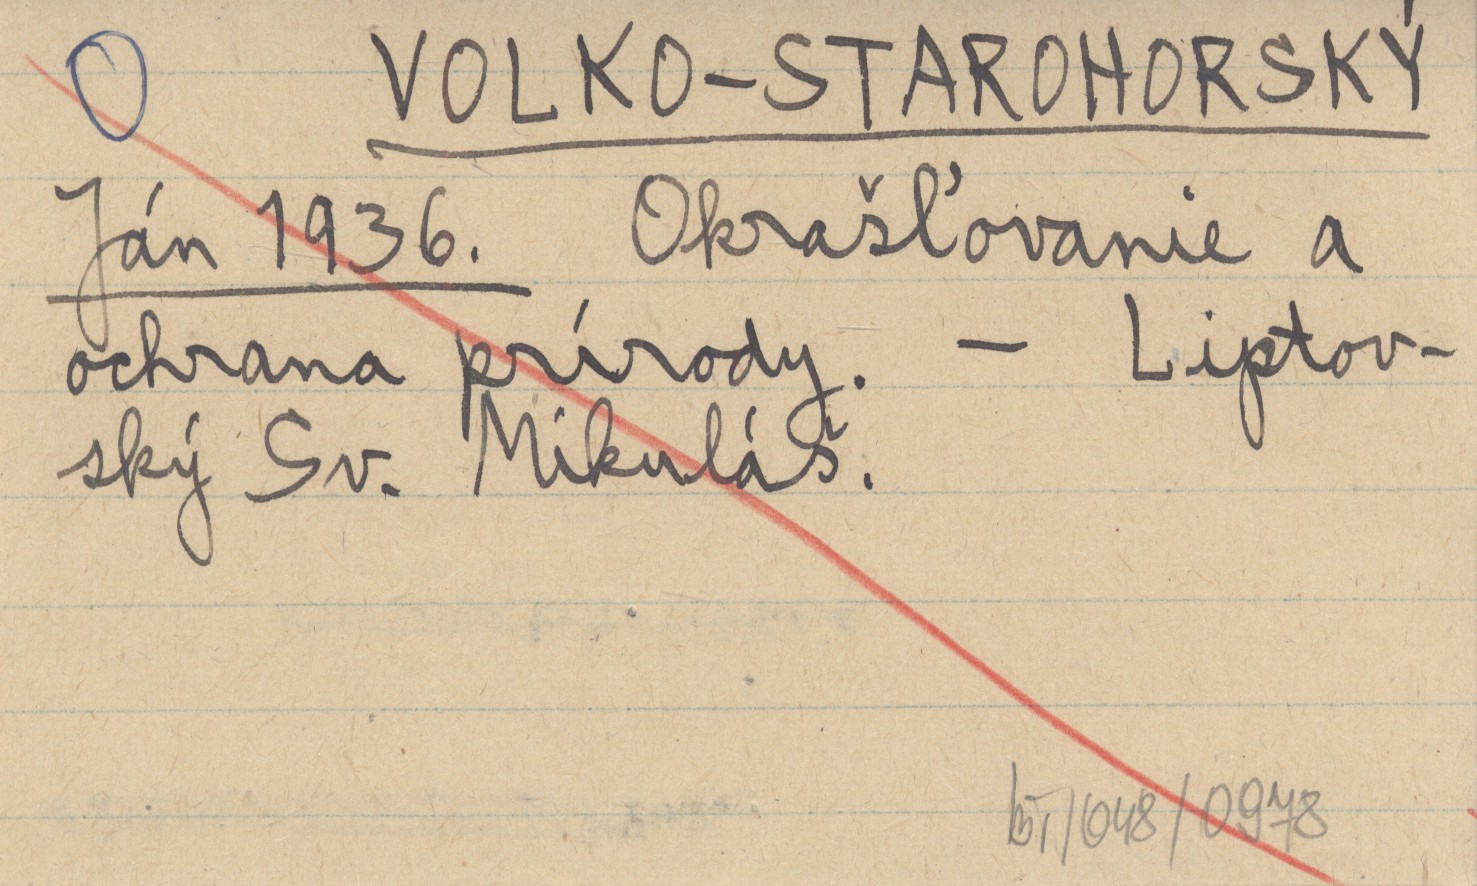 O VOLKO-STAROHORSKÝ
Ján 1936. Okrašľovanie a
ochrana prírody. – Liptov-
ský Sv. Mikuláš.
/048/0978